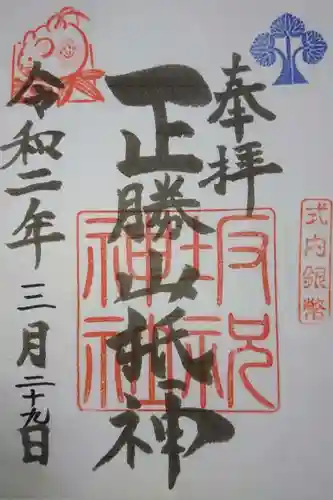 奉拝
正勝山抵神
坂祝神社
式内銀幣
令和二年三月二十九日